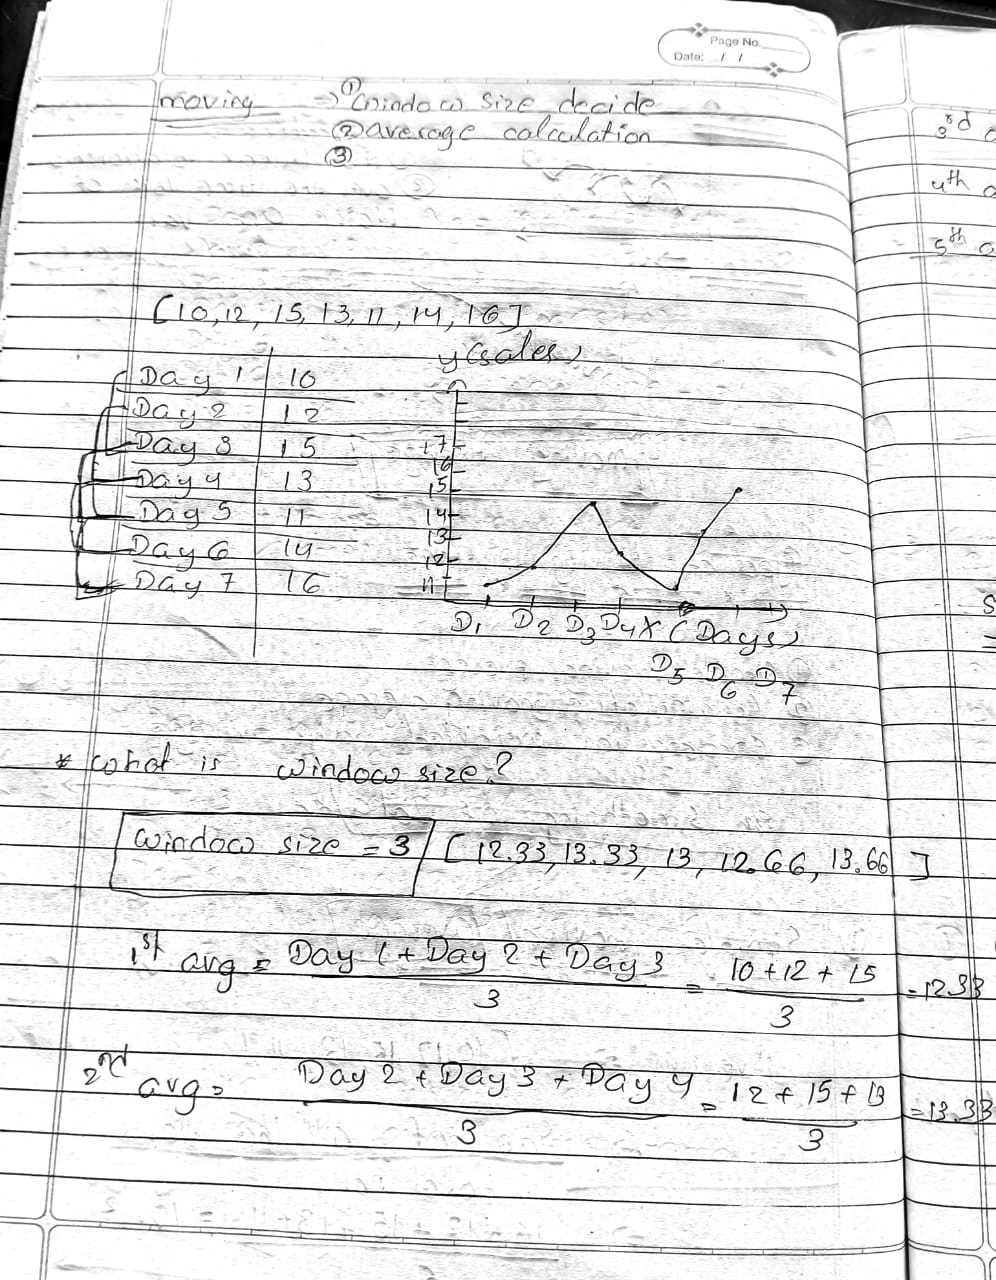 Page No.
Date: / /
moving → ① window size decide
② average calculation
③
3rd
4th
5th
[10, 12, 15, 13, 11, 14, 16]
y (sales)
Day 1 10
Day 2 12
Day 3 15
Day 4 13
Day 5 11
Day 6 14
Day 7 16
17
16
15
14
13
12
11
D1 D2 D3 D4 X (Days)
D5 D6 D7
* what is window size?
window size = 3 [12.33, 13.33, 13, 12.66, 13.66]
1st avg = Day 1 + Day 2 + Day 3 / 3 = 10 + 12 + 15 / 3 = 12.33
2nd avg = Day 2 + Day 3 + Day 4 / 3 = 12 + 15 + 13 / 3 = 13.33